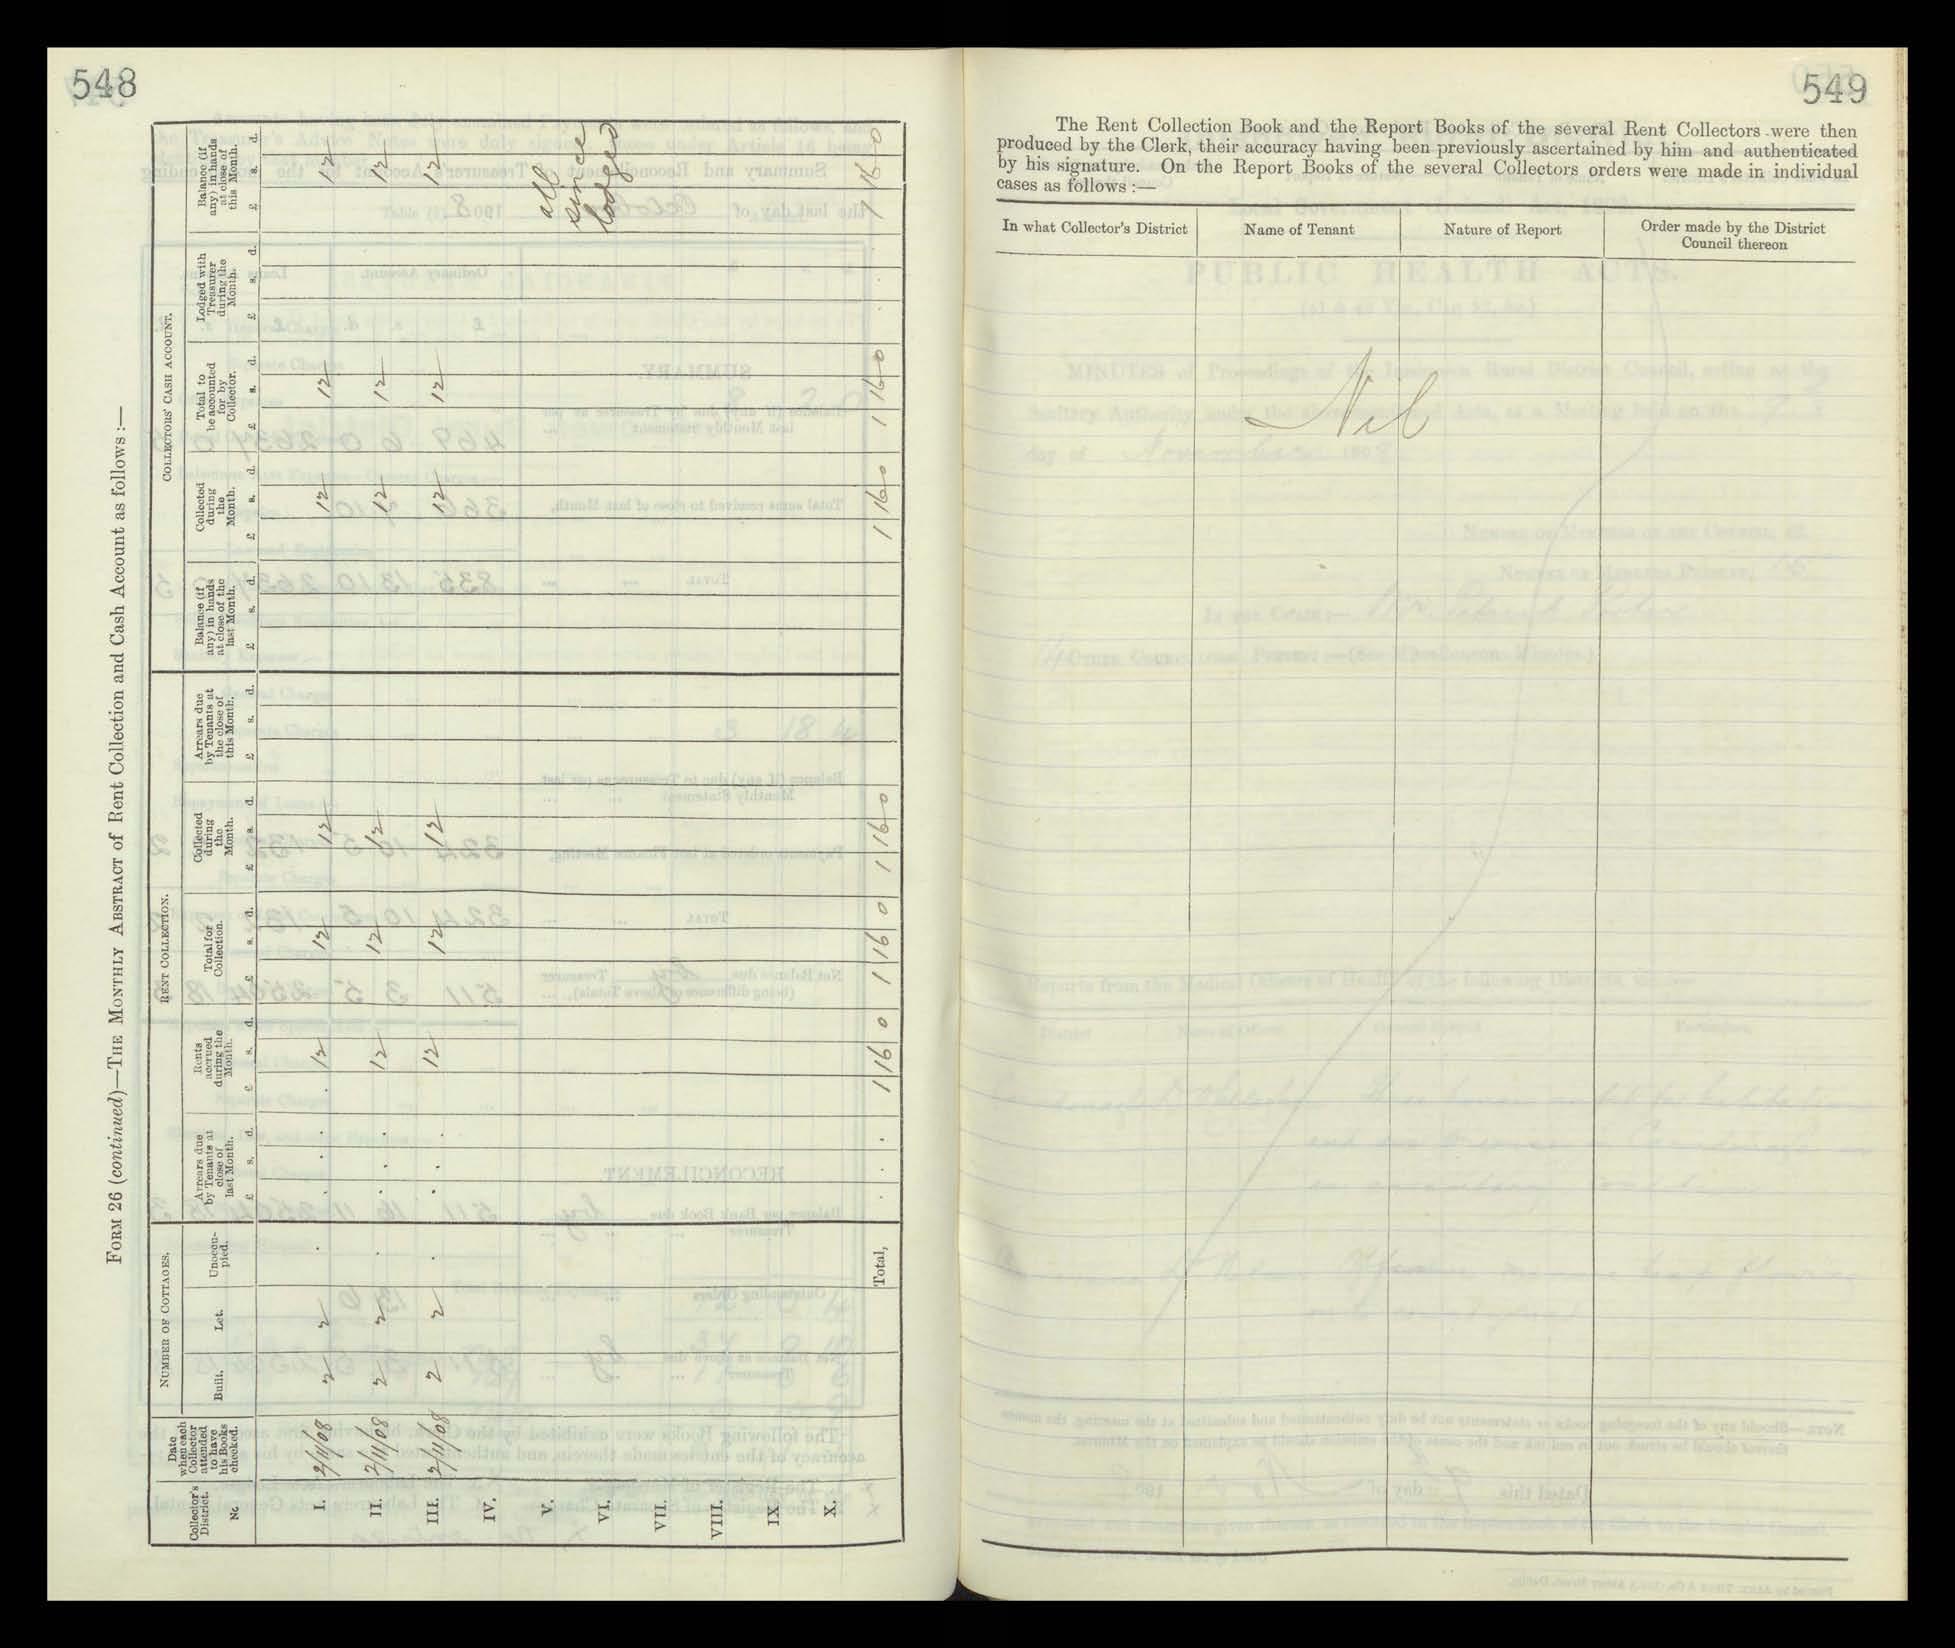 548
FORM 26 (continued)—THE MONTHLY ABSTRACT of Rent Collection and Cash Account as follows :—
Collector's District. | Date when each Collector attended to have his Books checked. | NUMBER OF COTTAGES. | RENT COLLECTION. | COLLECTORS' CASH ACCOUNT.
No. | Built. | Let. | Unoccupied. | Arrears due by Tenants at close of last Month. | Rents accrued during the Month. | Total for Collection. | Collected during the Month. | Arrears due by Tenants at the close of this Month. | Balance (if any) in hands at close of the last Month. | Collected during the Month. | Total to be accounted for by Collector. | Lodged with Treasurer during the Month. | Balance (if any) in hands at close of this Month.
£ s. d. | £ s. d. | £ s. d. | £ s. d. | £ s. d. | £ s. d. | £ s. d. | £ s. d. | £ s. d. | £ s. d.
I. 2/11/08 2 2 . . . . . 12 12 12 12 12 12
II. 2/11/08 2 2 . . . . 12 12 12 12 12 12
III. 2/11/08 2 2 . . . . 12 12 12 12 12 12
IV.
V. all
VI. since
lodged
VII.
VIII.
IX
X.
Total, . . . 1 16 0 1 16 0 1 16 0 1 16 0 1 16 0 . . 1 16 0
549
The Rent Collection Book and the Report Books of the several Rent Collectors were then
produced by the Clerk, their accuracy having been previously ascertained by him and authenticated
by his signature. On the Report Books of the several Collectors orders were made in individual
cases as follows :—
In what Collector's District | Name of Tenant | Nature of Report | Order made by the District Council thereon
Nil